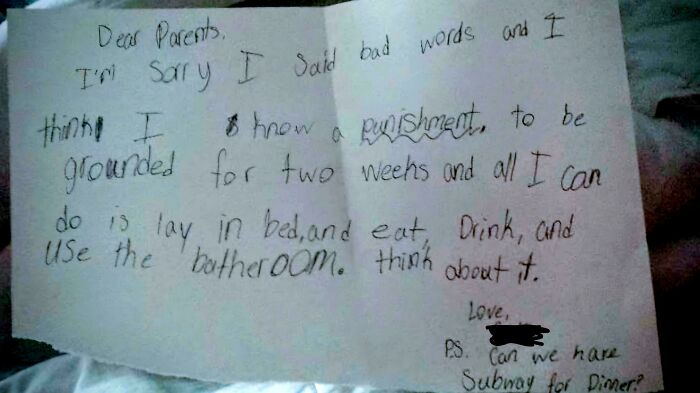 Dear Parents,
I'm Sorry I Said bad words and I
think I know a punishment. to be
grounded for two weeks and all I can
do is lay in bed, and eat, Drink, and
use the batheroom. think about it.
Love,
P.S. Can we have
Subway for Dinner?